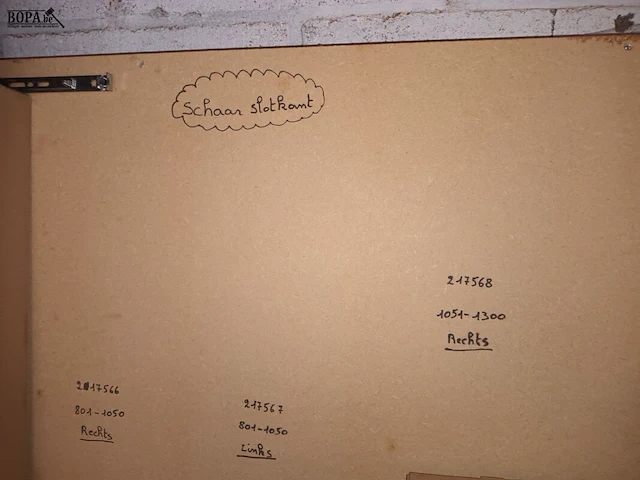 BOPA.be
Schaar slotkant
217568
1051-1300
Rechts
217566
801-1050
Rechts
217567
801-1050
Links